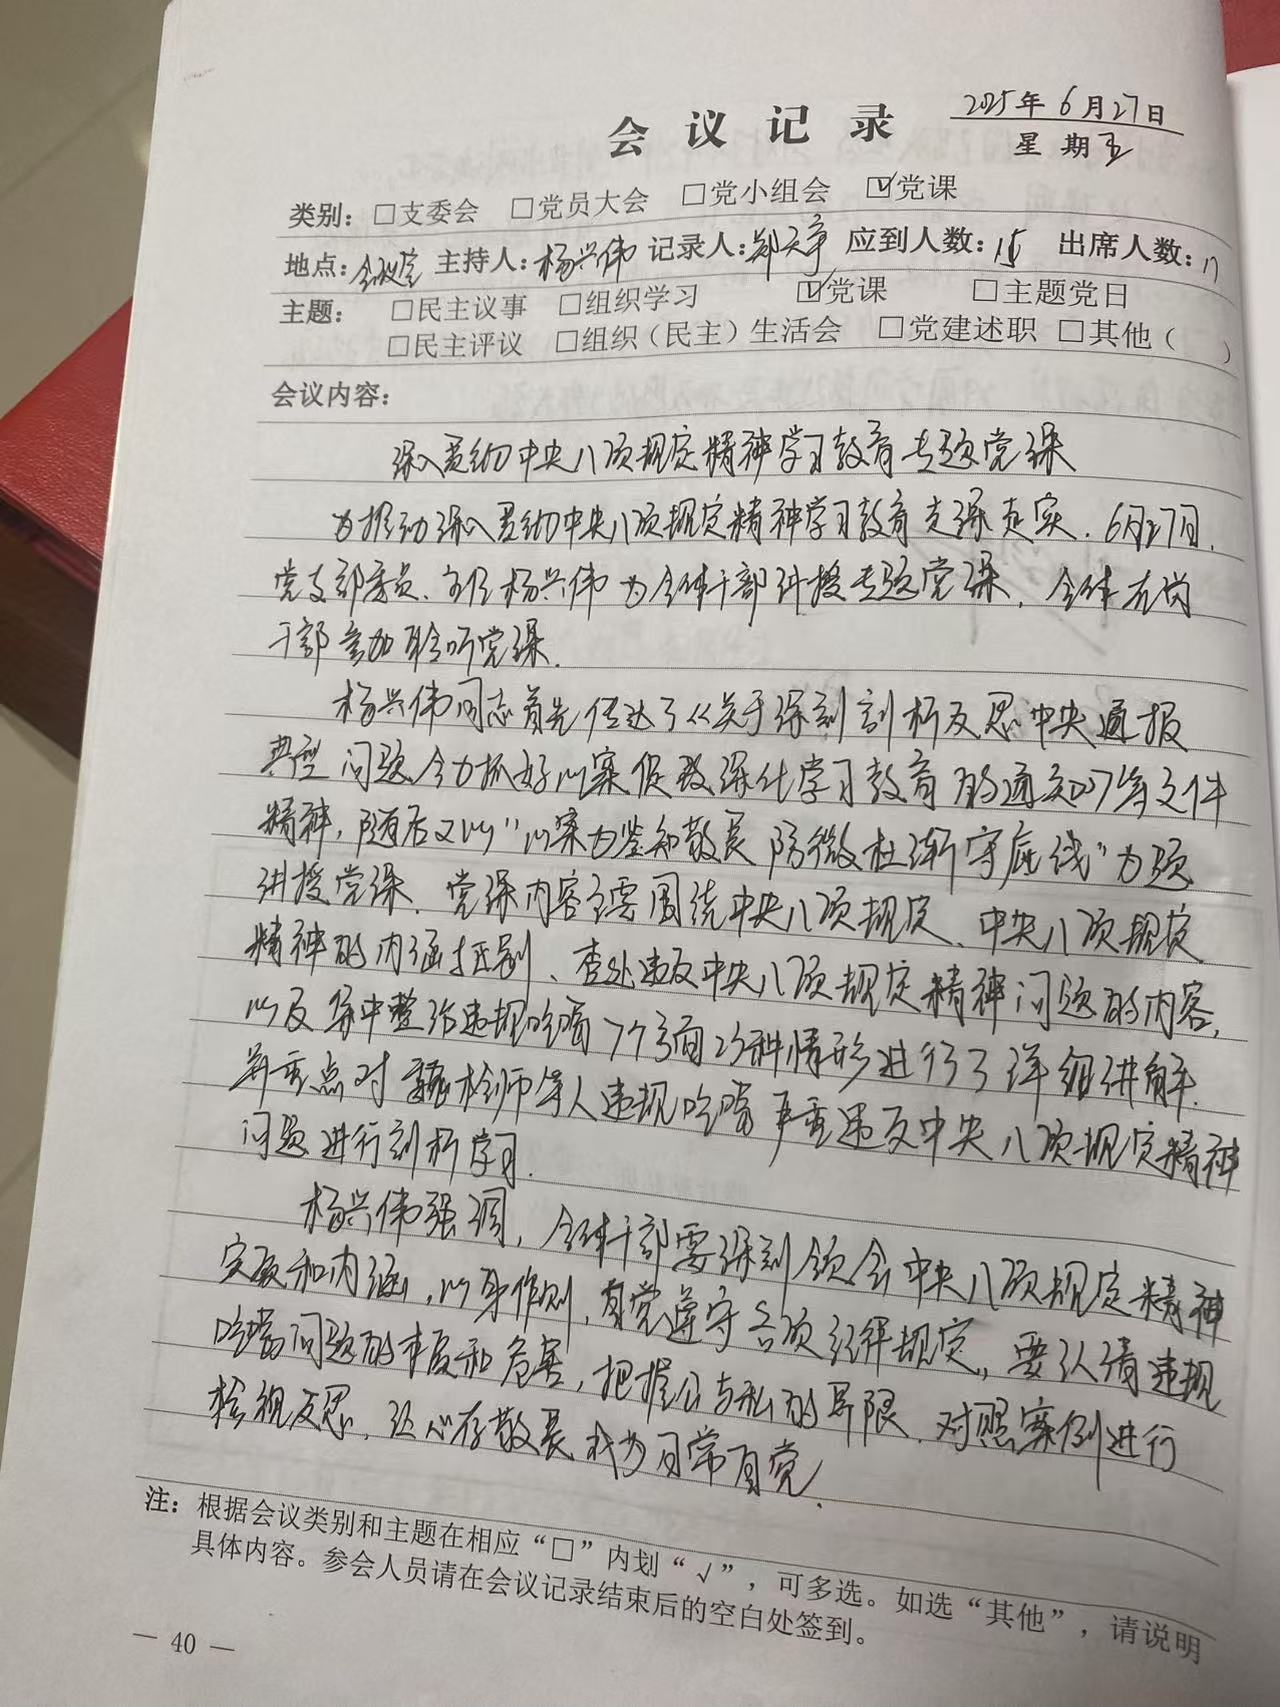 会议记录
2025年6月27日
星期五
类别：□支委会 □党员大会 □党小组会 ☑党课
地点：会议室 主持人：杨兴伟 记录人：郑天宇 应到人数：15 出席人数：17
主题： □民主议事 □组织学习 ☑党课 □主题党日
□民主评议 □组织（民主）生活会 □党建述职 □其他（ ）
会议内容：
深入贯彻中央八项规定精神学习教育专题党课
为推动深入贯彻中央八项规定精神学习教育走深走实，6月27日，
党支部委员、主任杨兴伟为全体干部讲授专题党课，全体在岗
干部参加聆听党课。
杨兴伟同志首先传达了《关于深刻剖析反思中央通报
典型问题全力抓好以案促改深化学习教育的通知》等文件
精神，随后又以“以案为鉴知敬畏 防微杜渐守底线”为题
讲授党课。党课内容主要围绕中央八项规定、中央八项规定
精神的内涵区别、查处违反中央八项规定精神问题的内容，
以及集中整治违规吃喝7个方面23种情形进行了详细讲解。
并重点对 检师等人违规吃喝严重违反中央八项规定精神
问题进行剖析学习。
杨兴伟强调，全体干部要深刻领会中央八项规定精神
实质和内涵，以身作则，自觉遵守各项纪律规定，要认清违规
吃喝问题的本质和危害，把握公与私的界限，对照案例进行
检视反思，让心存敬畏成为日常自觉。
注：根据会议类别和主题在相应“□”内划“√”，可多选。如选“其他”，请说明
具体内容。参会人员请在会议记录结束后的空白处签到。
— 40 —